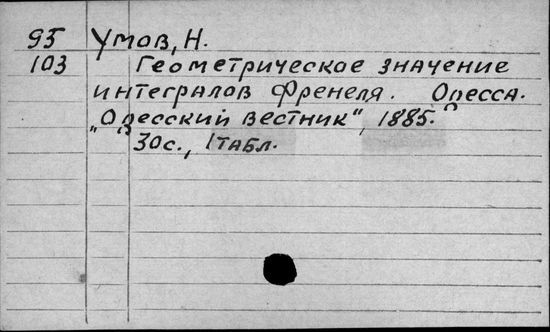 95 Умов, Н.
103 Геометрическое значение
интегралов Френеля. Одесса.
„Одесский вестник", 1885.
30с., 1 табл.